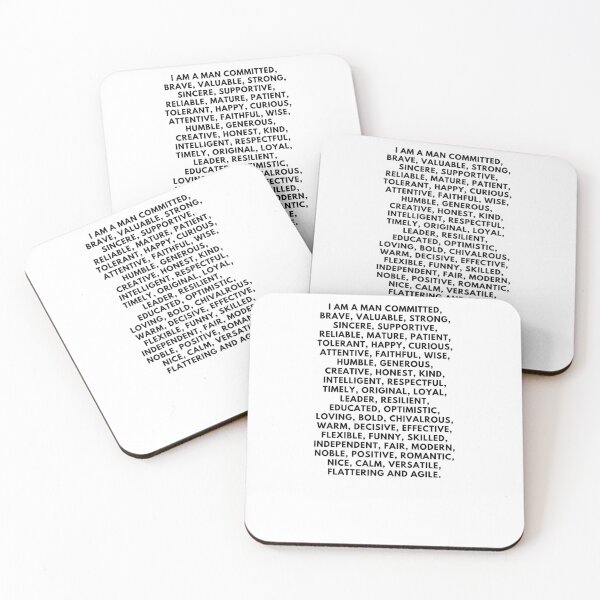 I AM A MAN COMMITTED,
BRAVE, VALUABLE, STRONG,
SINCERE, SUPPORTIVE,
RELIABLE, MATURE, PATIENT,
TOLERANT, HAPPY, CURIOUS,
ATTENTIVE, FAITHFUL, WISE,
HUMBLE, GENEROUS,
CREATIVE, HONEST, KIND,
INTELLIGENT, RESPECTFUL,
TIMELY, ORIGINAL, LOYAL,
LEADER, RESILIENT,
EDUCATED,
LOVING,
I AM A MAN COMMITTED,
BRAVE, VALUABLE, STRONG,
SINCERE, SUPPORTIVE,
RELIABLE, MATURE, PATIENT,
TOLERANT, HAPPY, CURIOUS,
ATTENTIVE, FAITHFUL, WISE,
HUMBLE, GENEROUS,
CREATIVE, HONEST, KIND,
INTELLIGENT, RESPECTFUL,
TIMELY, ORIGINAL, LOYAL,
LEADER, RESILIENT,
EDUCATED, OPTIMISTIC,
LOVING, BOLD, CHIVALROUS,
WARM, DECISIVE, EFFECTIVE,
FLEXIBLE, FUNNY, SKILLED,
INDEPENDENT, FAIR, MODERN,
NOBLE, POSITIVE, ROMANTIC,
NICE, CALM, VERSATILE,
FLATTERING AND AGILE.
I AM A MAN COMMITTED,
BRAVE, VALUABLE, STRONG,
SINCERE, SUPPORTIVE,
RELIABLE, MATURE, PATIENT,
TOLERANT, HAPPY, CURIOUS,
ATTENTIVE, FAITHFUL, WISE,
HUMBLE, GENEROUS,
CREATIVE, HONEST, KIND,
INTELLIGENT, RESPECTFUL,
TIMELY, ORIGINAL, LOYAL,
LEADER, RESILIENT,
EDUCATED, OPTIMISTIC,
LOVING, BOLD, CHIVALROUS,
WARM, DECISIVE, EFFECTIVE
FLEXIBLE, FUNNY, SKILLED,
INDEPENDENT, FAIR,
NOBLE, POSITIVE,
NICE, CALM,
FLATTERING AND AGILE.
I AM A MAN COMMITTED,
BRAVE, VALUABLE, STRONG,
SINCERE, SUPPORTIVE,
RELIABLE, MATURE, PATIENT,
TOLERANT, HAPPY, CURIOUS,
ATTENTIVE, FAITHFUL, WISE,
HUMBLE, GENEROUS,
CREATIVE, HONEST, KIND,
INTELLIGENT, RESPECTFUL,
TIMELY, ORIGINAL, LOYAL,
LEADER, RESILIENT,
EDUCATED, OPTIMISTIC,
LOVING, BOLD, CHIVALROUS,
WARM, DECISIVE, EFFECTIVE,
FLEXIBLE, FUNNY, SKILLED,
INDEPENDENT, FAIR, MODERN,
NOBLE, POSITIVE, ROMANTIC,
NICE, CALM, VERSATILE,
FLATTERING AND AGILE.